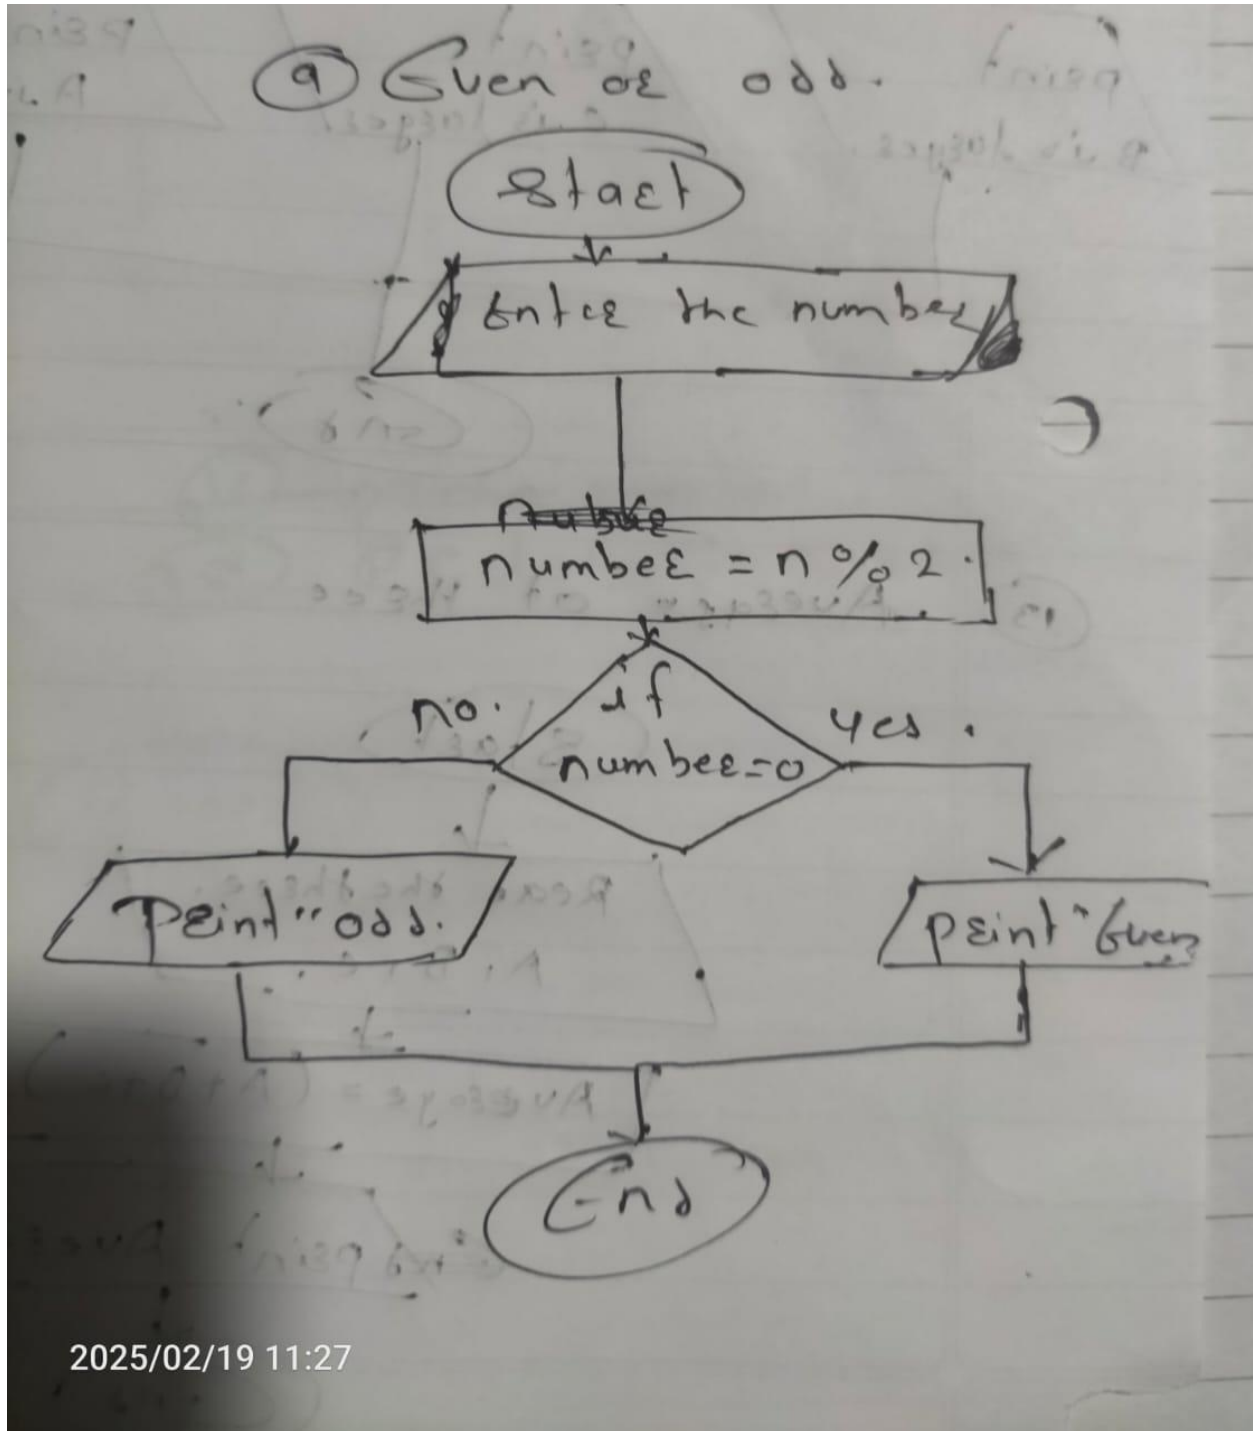 9 Even or odd.
Start
Enter the number
number = n % 2.
if
number=0
no.
yes.
Print "odd.
print "Even
End
2025/02/19 11:27